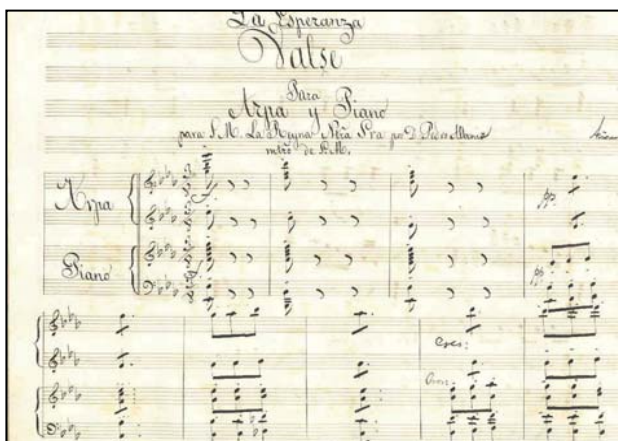 La Esperanza
Valse
Para
Arpa y Piano
para S. M. La Reyna Ntra Sra por D. Pedro Albeniz
mtro de S. M.
Arpa
Piano
pp.
pp.
Cres:
Cres: